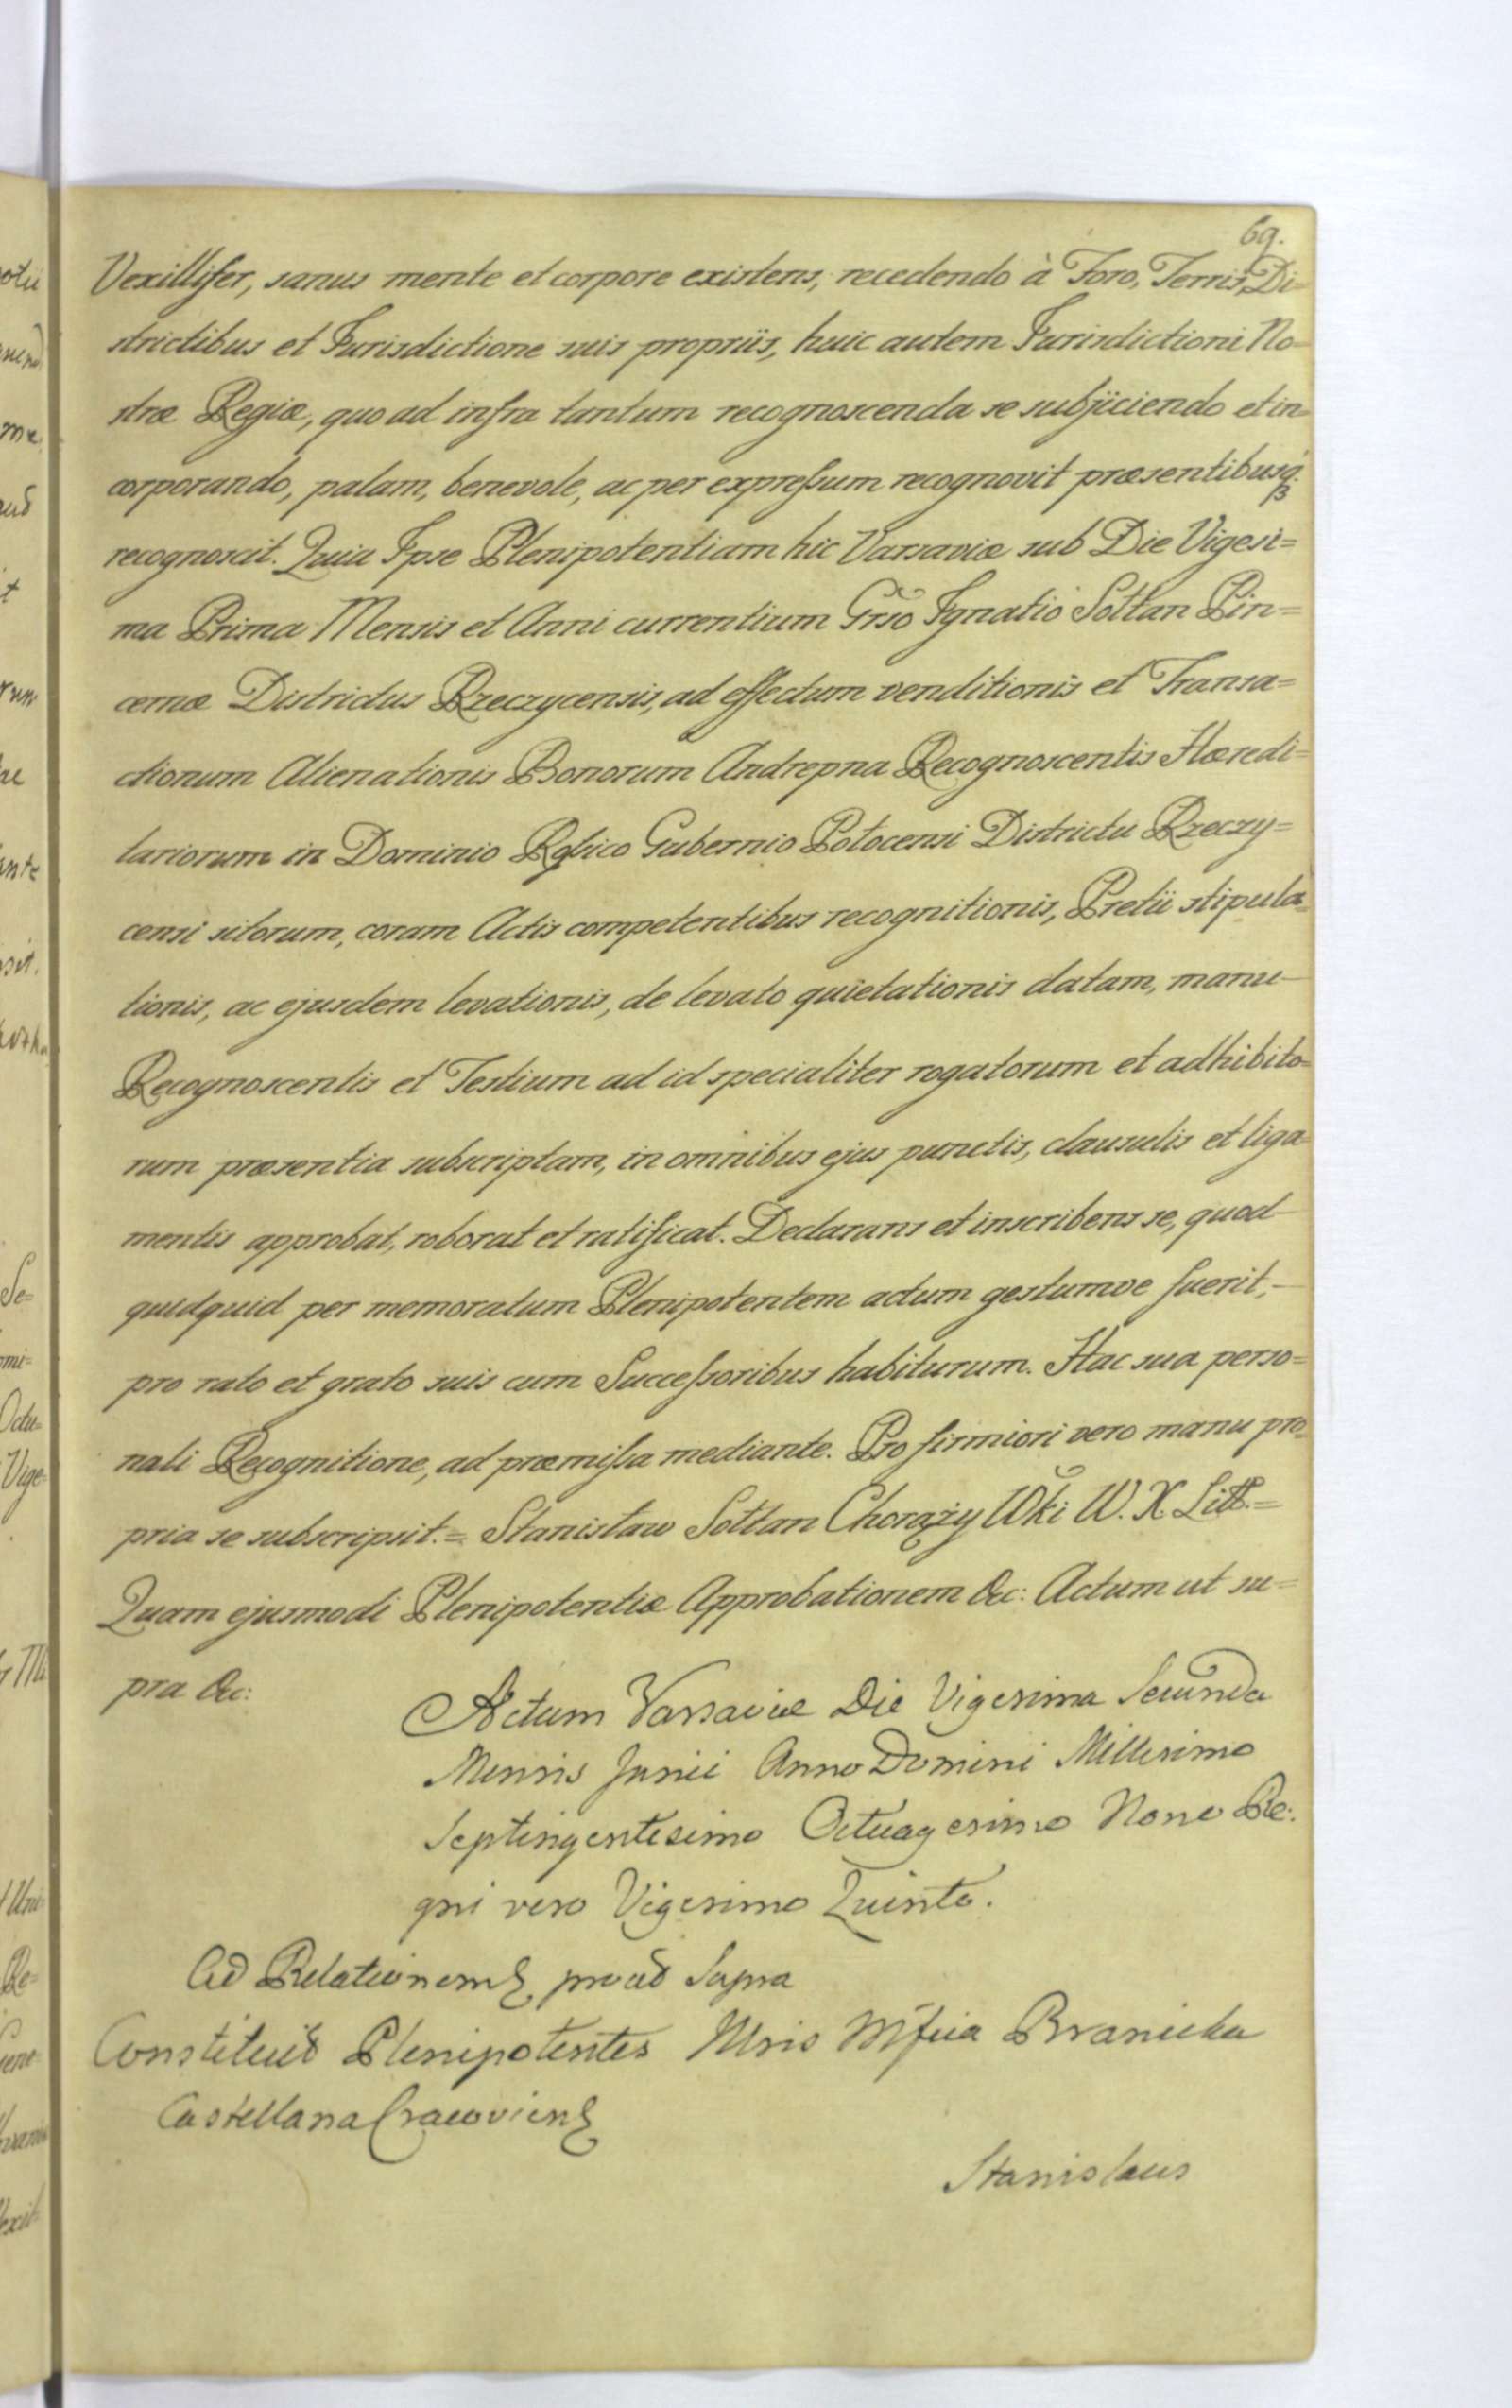 69.
Vexillifer, sanus mente et corpore existens, recedendo à Foro, Terris, Di-
strictibus et Jurisdictione suis propriis, huic autem Jurisdictioni No-
stræ Regiæ, quo ad infra tantum recognoscenda se subjiciendo et in-
corporando, palam, benevole, ac per expreſsum recognovit præsentibusq.
recognoscit. Quia Ipse Plenipotentiam hic Varsaviæ sub Die Vigesi=
ma Prima Mensis et Anni currentium Grso Ignatio Sołtan Pin=
cernæ Districtus Rzeczycensis, ad effectum venditionis et Transa=
ctionum Alienationis Bonorum Andrepna Recognoscentis Hæredi=
tariorum in Dominio Rossico Gubernio Połocensi Districtu Rzeczy=
censi sitorum, coram Actis competentibus recognitionis, Pretii stipula-
tionis, ac ejusdem levationis, de levato quietationis datam, manu
Recognoscentis et Testium ad id specialiter rogatorum et adhibito-
rum præsentia subscriptam, in omnibus ejus punctis, clausulis et liga-
mentis approbat, roborat et ratificat. Declarans et inscribens se, quod
quidquid per memoratum Plenipotentem actum gestumve fuerit,-
pro rato et grato suis cum Succeſsoribus habiturum. Hac sua perso=
nali Recognitione, ad præmiſsa mediante. Pro firmiori vero manu pro-
pria se subscripsit.= Stanisław Sołtan Chorąży Wki W. X Litt.=
Quam ejusmodi Plenipotentiæ Approbationem &c: Actum ut su=
pra &c:
Actum Varsaviæ Die Vigesima Secunda
Mensis Junii Anno Domini Millesimo
Septingentesimo Octuagesimo Nono Re:
gni vero Vigesimo Quinto.
Ad Relationem prout Supra
Constituit Plenipotentes Mfica Branicka
Castellana Cracovien
Stanislaus